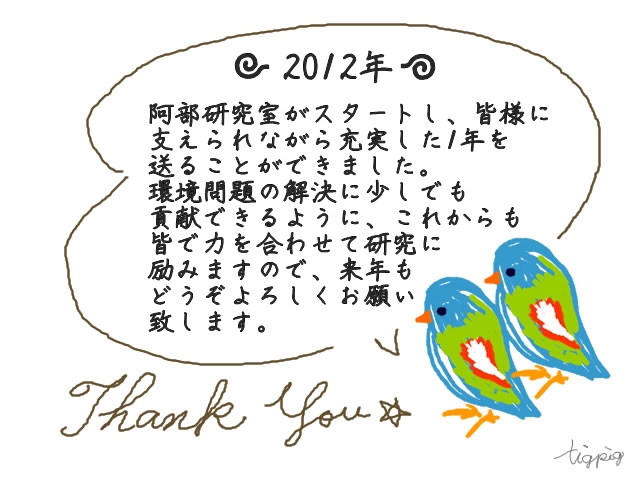 2012年
阿部研究室がスタートし、皆様に
支えられながら充実した1年を
送ることができました。
環境問題の解決に少しでも
貢献できるように、これからも
皆で力を合わせて研究に
励みますので、来年も
どうぞよろしくお願い
致します。
Thank You☆
tigpig